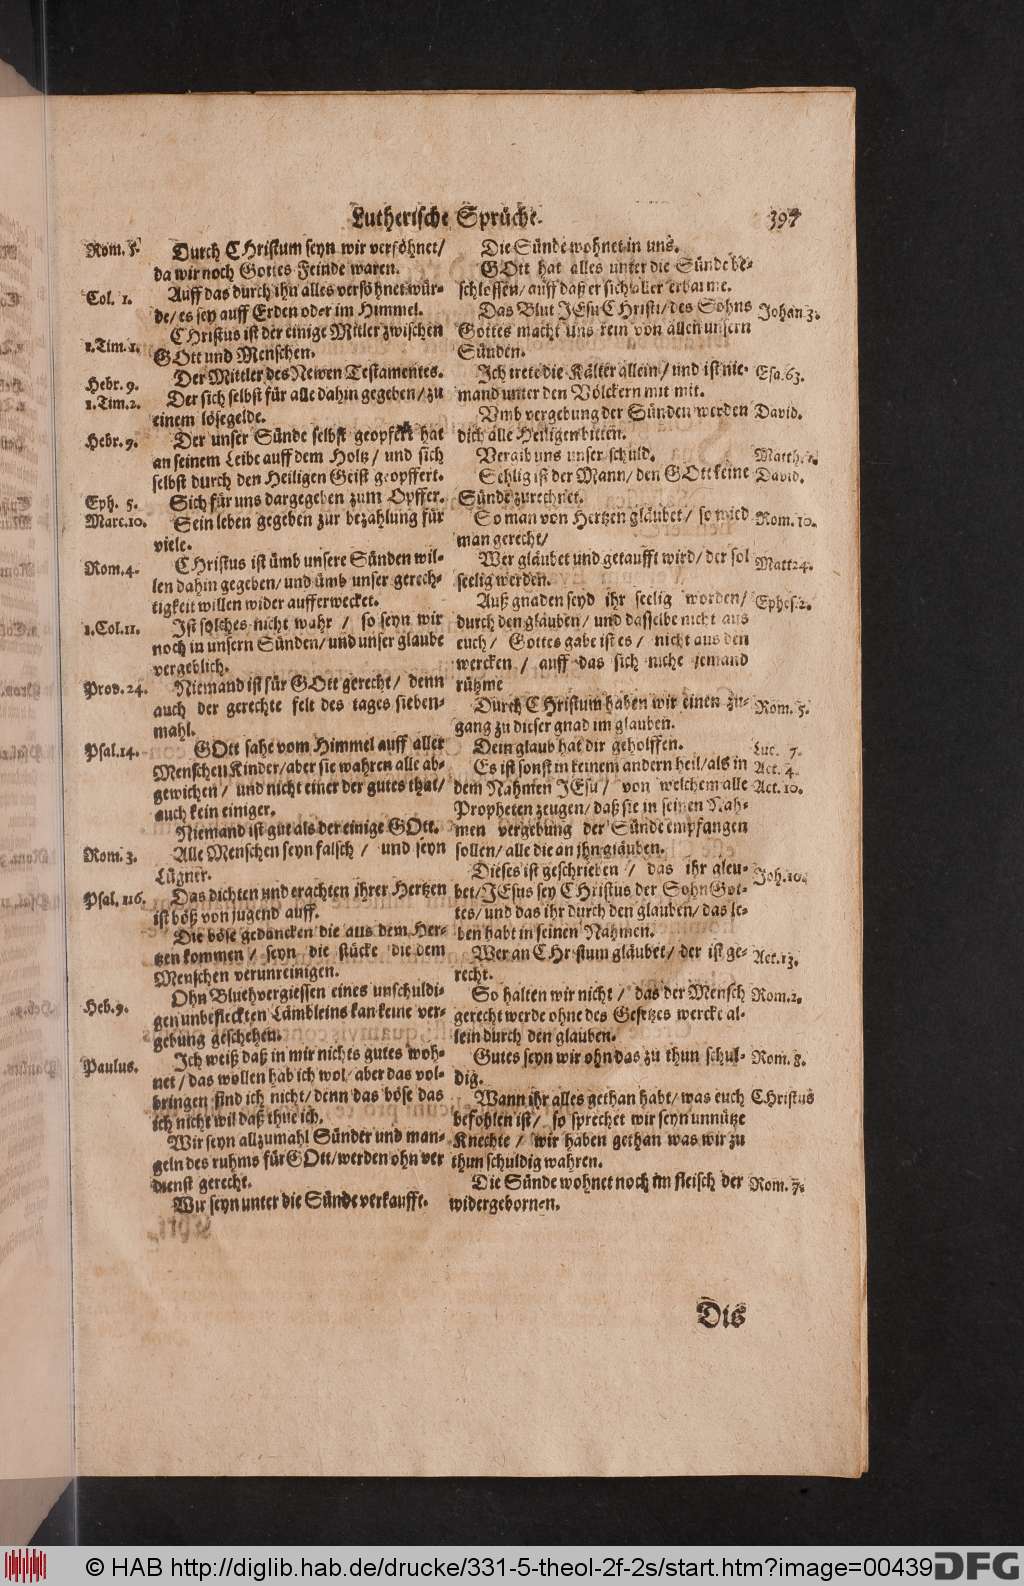 Lutherische Sprüche. 397
Rom. 5. Durch CHristum seyn wir versöhnet/
da wir noch Gottes Feinde waren.
Col. 1. Auff das durch ihn alles versöhnet wür-
de/ es sey auff Erden oder im Himmel.
1.Tim.1. CHristus ist der einige Mitler zwischen
GOtt und Menschen.
Hebr. 9. Der Mittler des Newen Testamentes.
1.Tim.2. Der sich selbst für alle dahin gegeben/ zu
einem lösegelde.
Hebr. 9. Der unser Sünde selbst geopfert hat
an seinem Leibe auff dem Holtz/ und sich
selbst durch den Heiligen Geist geopffert.
Eph. 5. Sich für uns dargegeben zum Opffer.
Marc.10. Sein leben gegeben zur bezahlung für
viele.
Rom.4. CHristus ist ümb unsere Sünden wil-
len dahin gegeben/ und ümb unser gerech-
tigkeit willen wider aufferwecket.
1.Col.11. Ist solches nicht wahr / so seyn wir
noch in unsern Sünden/ und unser glaube
vergeblich.
Prov. 24. Niemand ist für GOtt gerecht/ denn
auch der gerechte felt des tages sieben-
mahl.
Psal.14. GOtt sahe vom Himmel auff aller
Menschen Kinder/ aber sie wahren alle ab-
gewichen/ und nicht einer der gutes that/
auch kein einiger.
Niemand ist gut als der einige GOtt.
Rom. 3. Alle Menschen seyn falsch / und seyn
Lügner.
Psal. 116. Das dichten und erachten ihrer Hertzen
ist böß von jugend auff.
Die böse gedancken die aus dem Her-
tzen kommen / seyn die stücke die dem
Menschen verunreinigen.
Heb. 9. Ohn Bluehvergiessen eines unschuldi-
gen unbefleckten Lämbleins kan keine ver-
gebung geschehen.
Paulus. Ich weiß daß in mir nichts gutes woh-
net/ das wollen hab ich wol/ aber das vol-
bringen find ich nicht/ denn das böse das
ich nicht wil daß thue ich.
Wir seyn allzumahl Sünder und man-
geln des ruhms für GOtt/ werden ohn ver
dienst gerecht.
Wir seyn unter die Sünde verkaufft.
Die Sünde wohnet in uns.
GOtt hat alles unter die Sünde be-
schlossen/ auff daß er sich aller erbarme.
Das Blut JEsu CHristi/ des Sohns Johan 3.
Gottes macht uns rein von allen unsern
Sünden.
Ich trete die Kälter allein/ und ist nie- Esa. 63.
mand unter den Völckern mit mit.
Vmb vergebung der Sünden werden David.
dich alle Heiligen bitten.
Vergib uns unser schuld. Matth.
Sehlig ist der Mann/ den GOtt keine David.
Sünde zurechnet.
So man von Hertzen gläubet/ so wied Rom. 10.
man gerecht/
Wer gläubet und getaufft wird/ der sol Matt24.
seelig werden.
Auß gnaden seyd ihr seelig worden/ Ephes. 2.
durch den glauben/ und dasselbe nicht aus
euch/ Gottes gabe ist es/ nicht aus den
wercken / auff das sich niche jemand
rühme
Durch CHristum haben wir einen zu- Rom. 5.
gang zu dieser gnad im glauben.
Dein glaub hat dir geholffen. Luc. 7.
Es ist sonst in keinem andern heil/ als in Act. 4.
dem Nahmen JEsu/ von welchem alle Act. 10.
Propheten zeugen/ daß sie in seinen Nah-
men vergebung der Sünde empfangen
sollen/ alle die an jhn gläuben.
Dieses ist geschrieben / das ihr gleu- Joh. 10.
bet/ JEsus sey CHristus der Sohn Got-
tes/ und das ihr durch den glauben/ das le-
ben habt in seinen Nahmen.
Wer an CHristum gläubet/ der ist ge- Act. 13.
recht.
So halten wir nicht / das der Mensch Rom. 2.
gerecht werde ohne des Gesetzes wercke al-
lein durch den glauben.
Gutes seyn wir ohn das zu thun schul- Rom. 8.
dig.
Wann ihr alles gethan habt/ was euch CHristus
befohlen ist/ so sprechet wir seyn unnütze
Knechte / wir haben gethan was wir zu
thun schuldig wahren.
Die Sünde wohnet noch im fleisch der Rom. 7.
widergebornen.
Dis
© HAB http://diglib.hab.de/drucke/331-5-theol-2f-2s/start.htm?image=00439
DFG